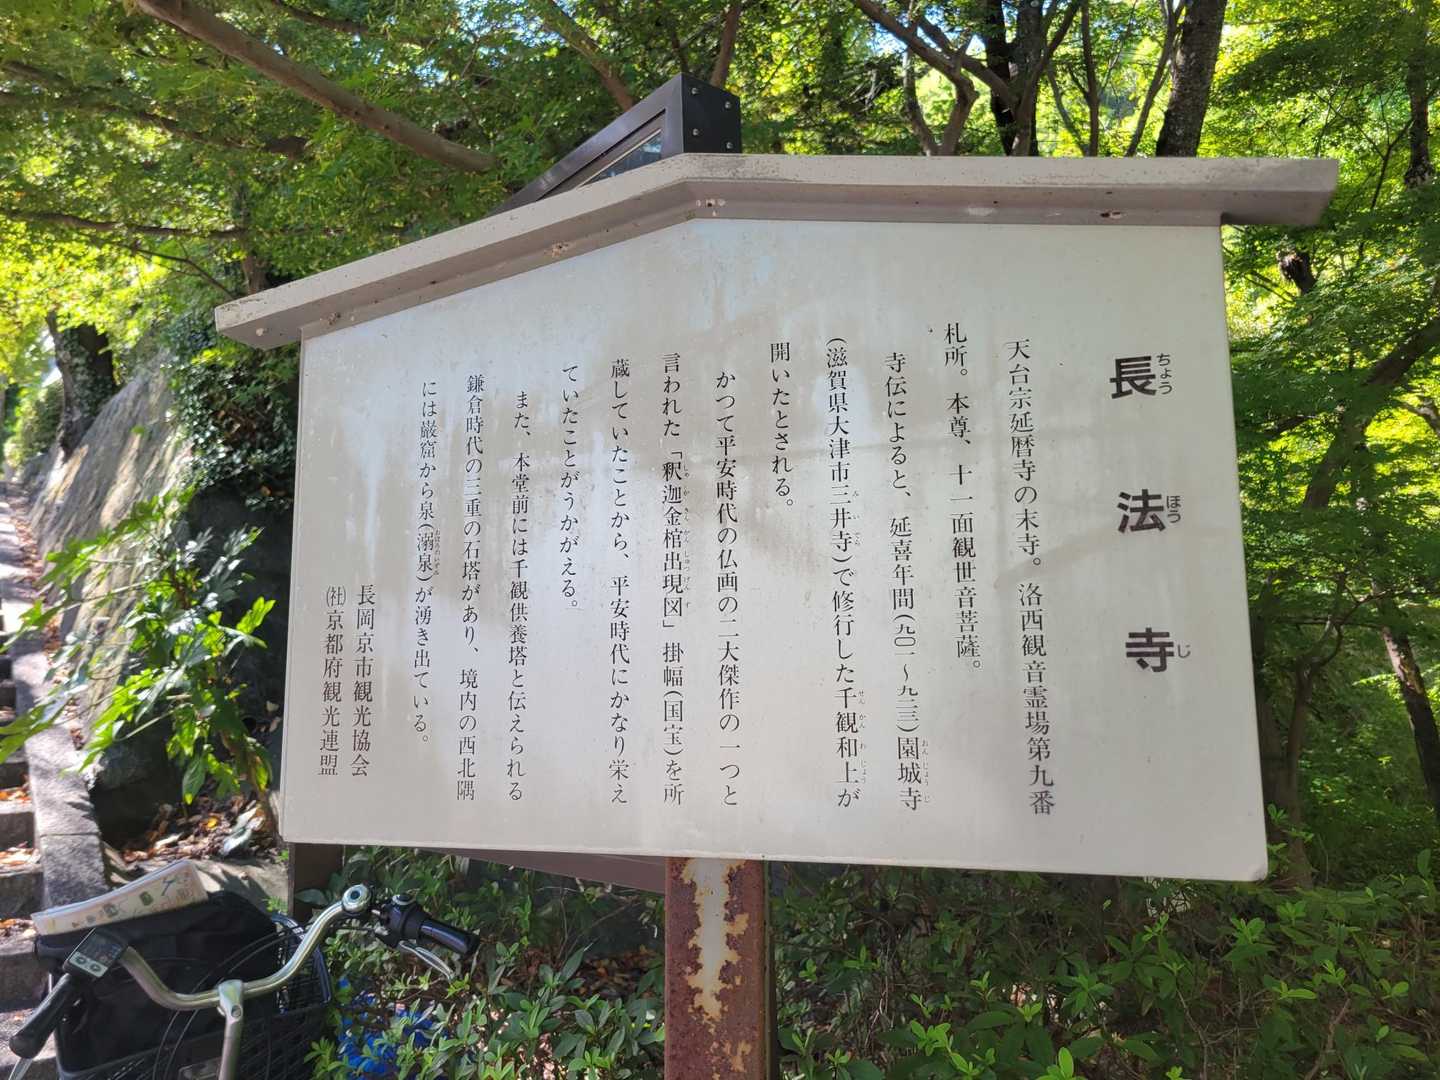 長法寺
天台宗延暦寺の末寺。洛西観音霊場第九番
札所。本尊、十一面観世音菩薩。
寺伝によると、延喜年間(九〇一〜九二三)園城寺
(滋賀県大津市三井寺)で修行した千観和上が
開いたとされる。
かつて平安時代の仏画の二大傑作の一つと
言われた「釈迦金棺出現図」掛幅(国宝)を所
蔵していたことから、平安時代にかなり栄え
ていたことがうかがえる。
また、本堂前には千観供養塔と伝えられる
鎌倉時代の三重の石塔があり、境内の西北隅
には巌窟から泉(溺泉)が湧き出ている。
長岡京市観光協会
㈳京都府観光連盟
ちょう
ほう
じ
おんじょうじ
みいでら
せんかんわじょう
しゃかきんかんしゅつげんず